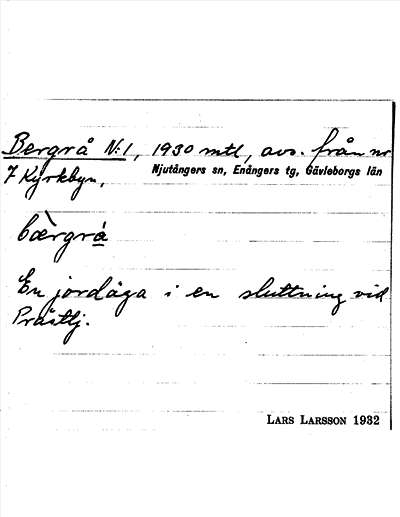 Bergrå N:1, 1930 mtl, avs. från nr
7 Kyrkbyn,
Njutångers sn, Enångers tg, Gävleborgs län
bæ̀rgrá
En jordäga i en sluttning vid
Prästtj.
LARS LARSSON 1932